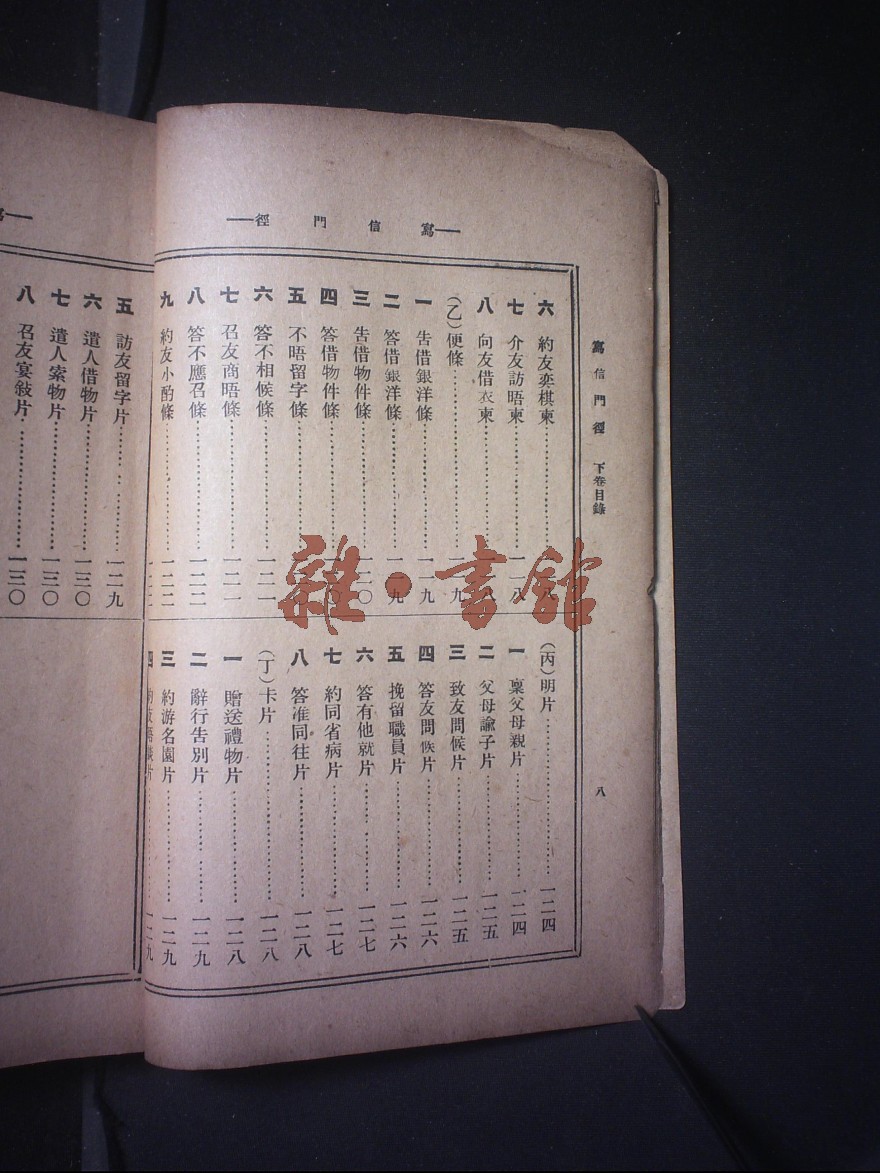 寫信門徑
寫信門徑 下卷目錄
八
六 約友奕棋柬
七 介友訪晤柬 一一八
八 向友借衣柬 一一八
(乙)便條 一一九
一 告借銀洋條 一一九
二 答借銀洋條 一一九
三 告借物件條 一二〇
四 答借物件條
五 不晤留字條
六 答不相候條 一二一
七 召友商晤條 一二一
八 答不應召條 一二二
九 約友小酌條 一二二
(丙)明片 一二四
一 稟父母親片 一二四
二 父母諭子片 一二五
三 致友問候片 一二五
四 答友問候片 一二六
五 挽留職員片 一二六
六 答有他就片 一二七
七 約同省病片 一二七
八 答准同往片 一二八
(丁)卡片 一二八
一 贈送禮物片 一二八
二 辭行告別片 一二九
三 約游名園片 一二九
四 片 一二九
五 訪友留字片 一二九
六 遣人借物片 一三〇
七 遣人索物片 一三〇
八 召友宴敍片 一三〇
雜·書館